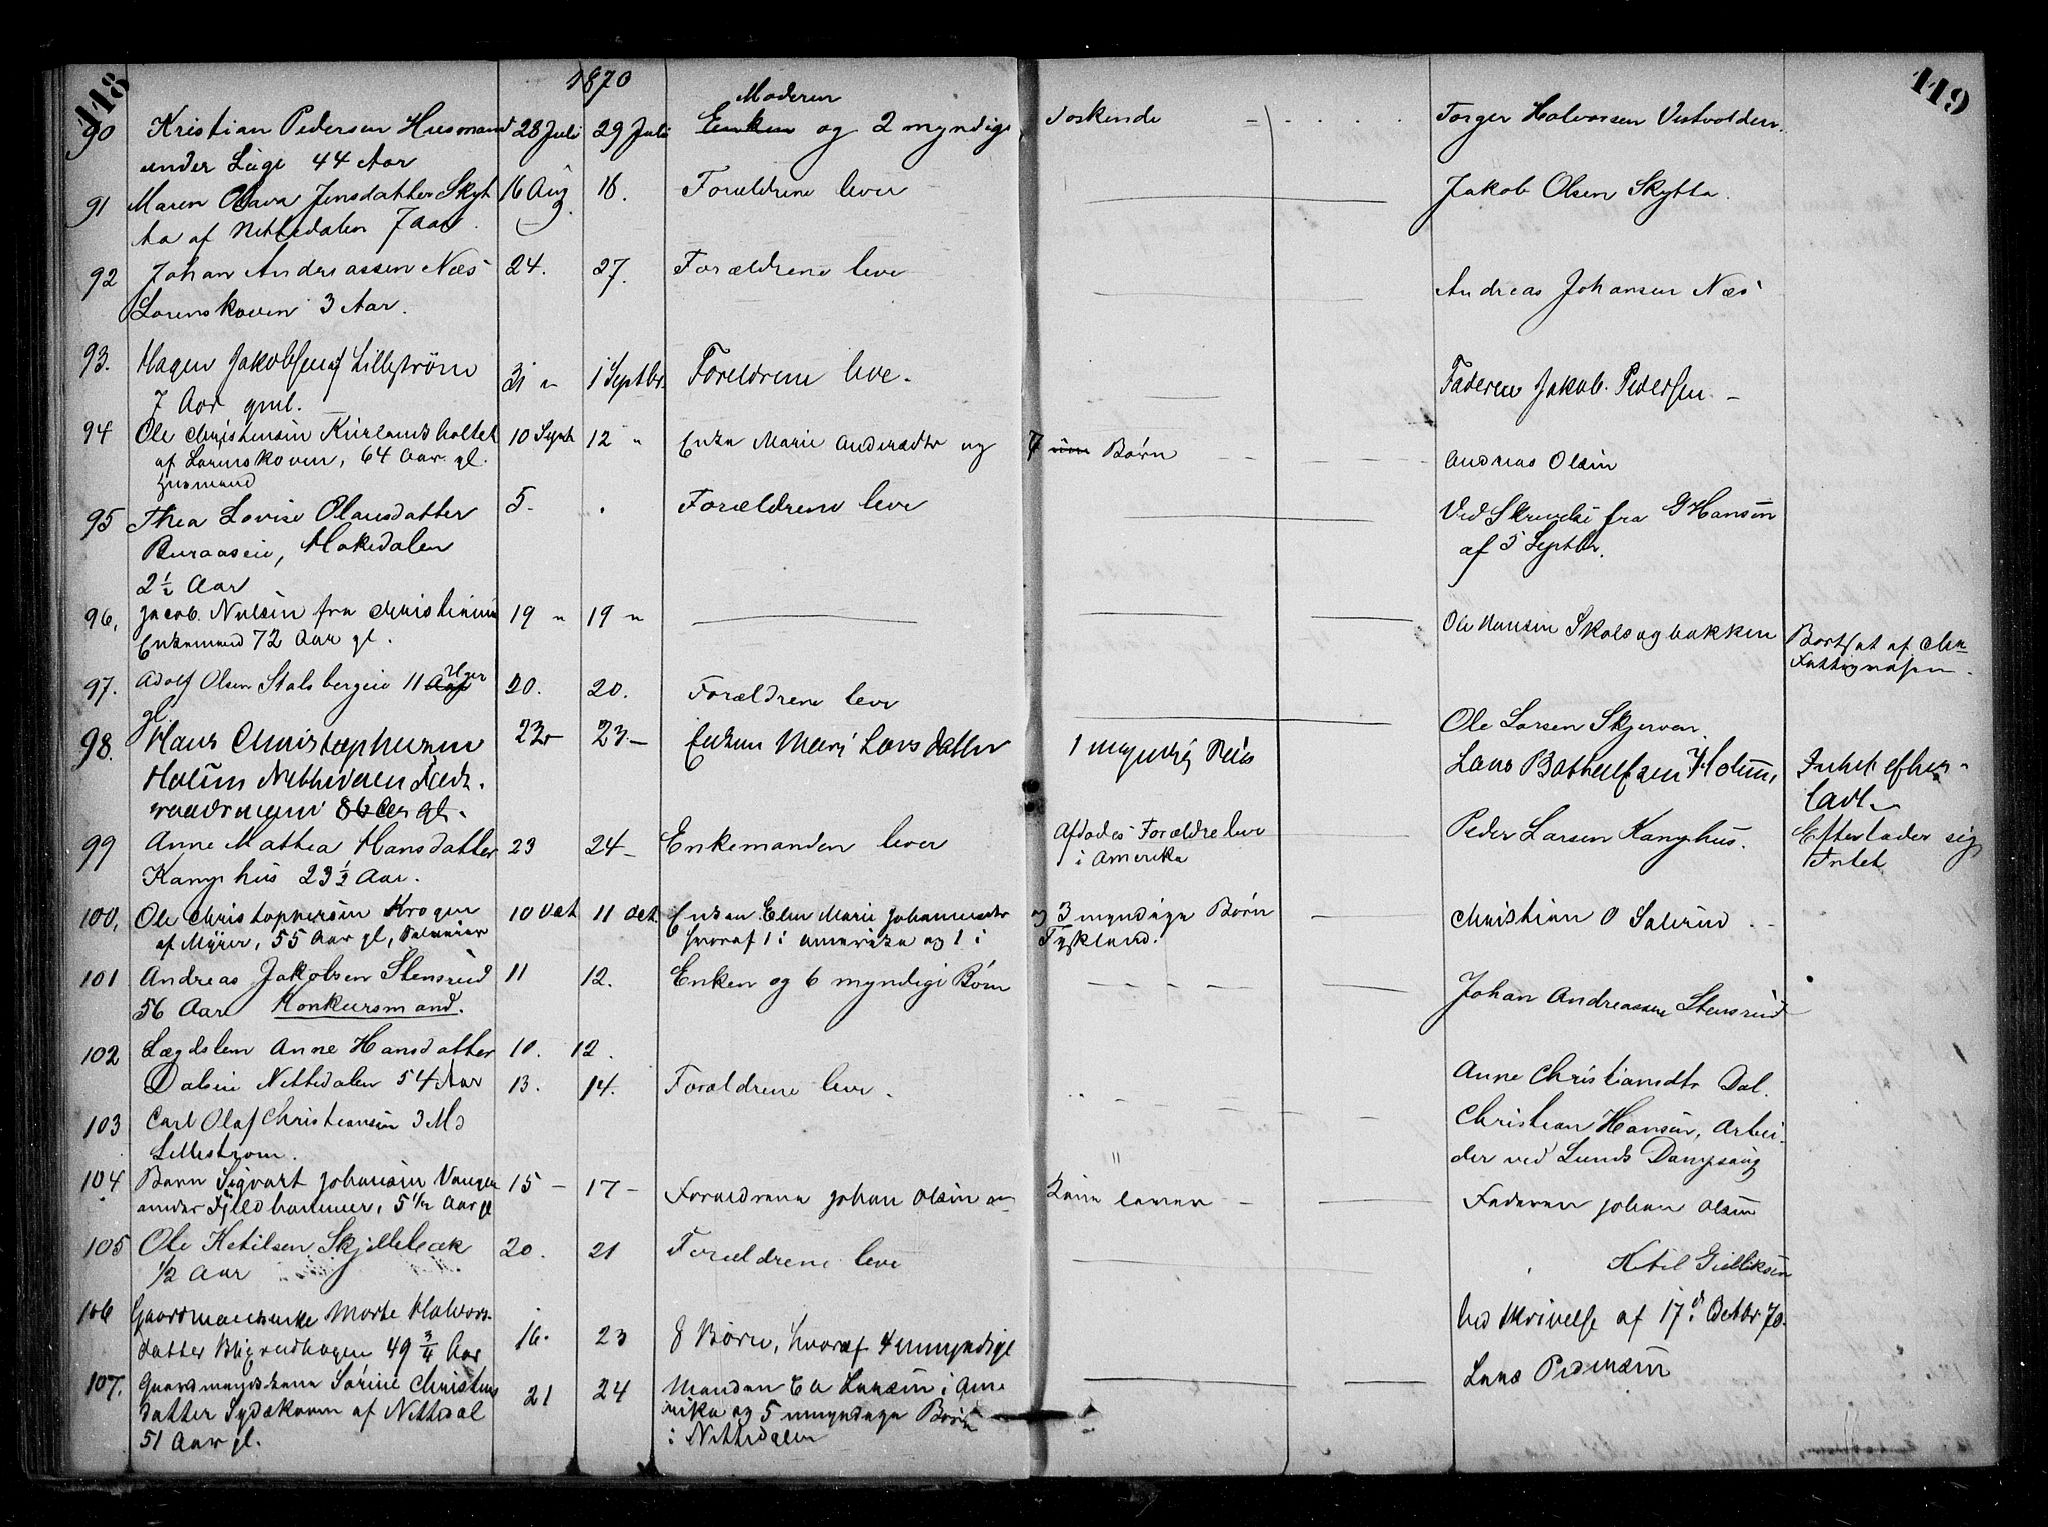 118
1870
119
90 Kristian Pedersen Husmand 28 Juli 29 Juli Moderen Enken og 2 myndige Søskende Torger Halvorsen Vestvolden.
under Lüge 44 Aar
91 Maren Olava Jensdatter Skyt 16 Aug. 18. Forældrene lever Jakob Olsen Skytta
ta af Nittedalen 7 aar
92 Johan Andreassen Næs 24. 27. Forældrene leve Andreas Johansen Næs
Lørenskoven 3 Aar.
93. Hagen Jakobsen af Lillestrøm 31 " 1 Septbr. Foreldrene leve. Faderen Jakob Pedersen
7 Aar gml.
94 Ole Christensen Kurlandsholtet 10 Septb 12 " Enke Marie Andersdtr og 7 Børn Andreas Olsen
af Lørenskoven, 64 Aar gl.
Husmand
95 Thea Lovise Olausdatter 5. Forældrene leve Ved Skrivelse fra G Hansen
Buraaseie, Hakedalen af 5 Septbr.
2½ Aar
96, Jacob Nilsen fra Christiania 19 " 19 " Ole Hansen Skalsogbakken Bortsat af Chra
Enkemand 72 Aar gl. Fattigvæsen.
97. Adolf Olsen Stalsbergeie 11 Aar Uger 20. 20. Forældrene leve Ole Larsen Skjerven.
gl.
98. Hans Christophersen 23 23 Enken Mari Larsdatter 1 myndig Lars Bottelfsen Holum, Intet efter-
Holüm Nittedalen Føde- ladt.
raadsmand 86 Aar gl.
99 Anne Mathea Hansdatter 23 24 Enkemanden lever Afdødes Forældre leve Peder Larsen Kamphus. Efterlader sig
Kamphus 23½ Aar. i Amerika Intet
100, Ole Christophersen Krogen 10 Oct 11 Oct. Enken Elen Marie Johannesdtr og 3 myndige Børn Christian O Salerud
af Myrer, 55 Aar gl, hvoraf 1 i Amerika og 1 i Tyskland.
101 Andreas Jakobsen Stensrud 11 12. Enken og 6 myndige Børn Johan Andreassen Stensrud
56 Aar Konkursmand.
102 Lægdslem Anne Hansdatter 10. 12. Anne Christiansdtr Dal.
Daleie Nittedalen 54 Aar 13. 14. Forældrene leve.
103 Carl Olaf Christiansen 3 Md Christian Hansen, Arbei-
Lillestrøm. der ved Lunds Dampsaug
104 Barn Sigvart Johansen Vangen 15 17 Forældrene Johan Olsen og Kone lever Faderen Johan Olsen
under Fjeldhammer, 5½ Aar gl
105 Ole Ketilsen Skjellebæk 20. 21 Forældrene leve Ketil Gulliksen
½ Aar
106 Gaardmandsenke Marte Halvors- 16. 23 8 Børn, hvoraf 4 umyndige Ved Skrivelse af 17d. Octbr 70.
datter 49¾ Aar
107. Gaardmandskone Sørine Christens 21 24 Manden E Larsen i Ame Lars Pedersen
datter Sydskoven af Nittedal rika og 5 umyndige Børn
51 Aar gl. i Nittedalen